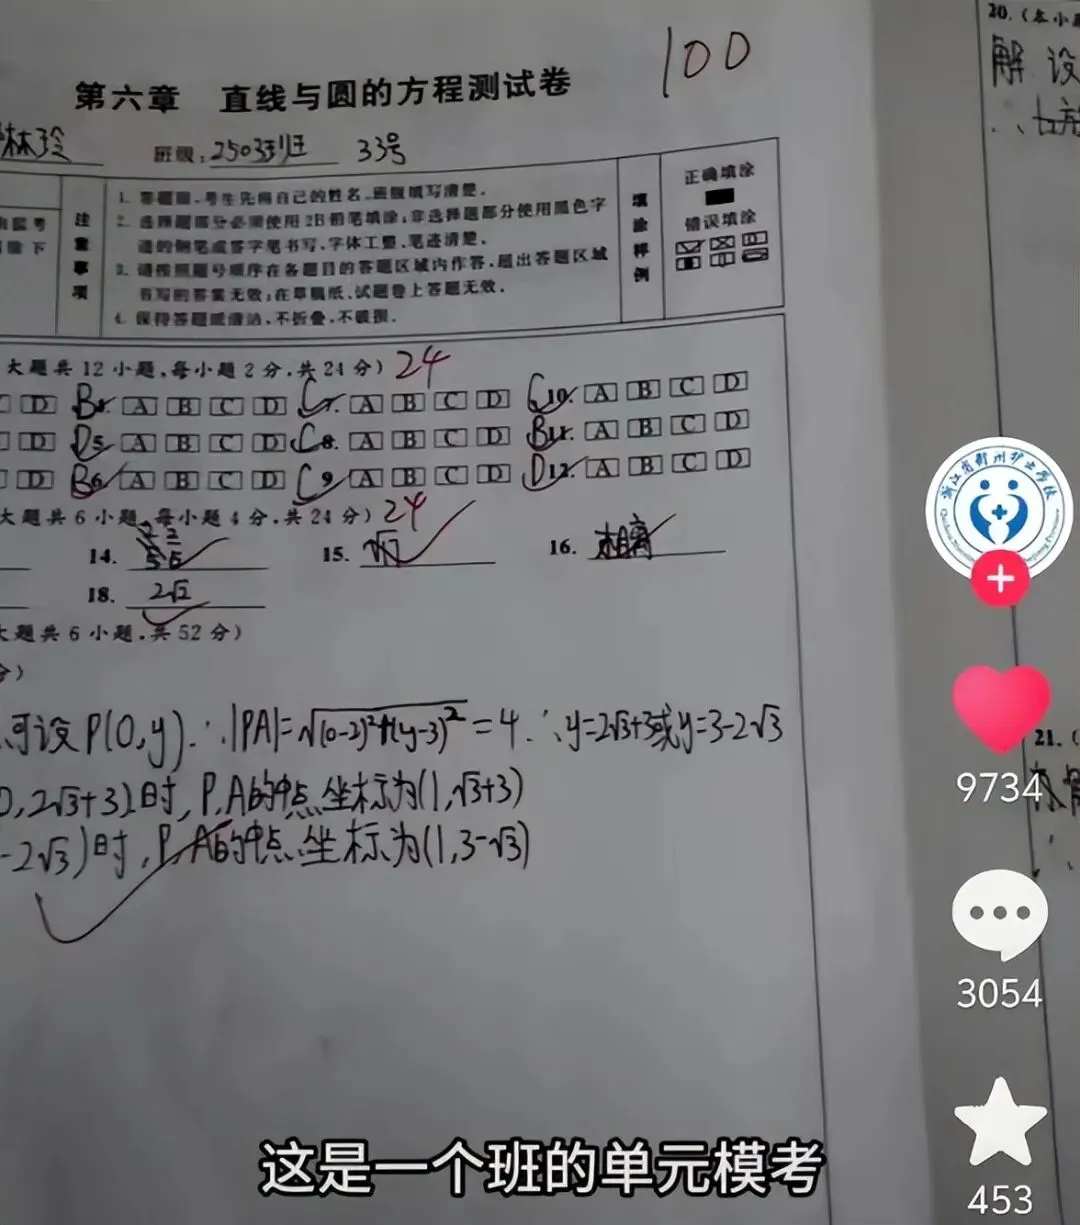 100
第六章 直线与圆的方程测试卷
林玲 班级:2503班 33号
注意事项
1. 答题前,考生先将自己的姓名、班级填写清楚.
2. 选择题部分必须使用2B铅笔填涂;非选择题部分使用黑色字
迹的钢笔或签字笔书写,字体工整、笔迹清楚.
3. 请按照题号顺序在各题目的答题区域内作答,超出答题区域
书写的答案无效;在草稿纸、试题卷上答题无效.
4. 保持答题纸清洁,不折叠,不破损.
填涂样例
正确填涂
错误填涂
大题共12小题,每小题2分,共24分) 24
D B A B C D C 7. A B C D C 10. A B C D
D D 5 A B C D C 8. A B C D B 11. A B C D
D B 6 A B C D C 9 A B C D D 12. A B C D
大题共6小题,每小题4分,共24分) 24
14. 15. 16. 相离
18. 2√2
大题共6小题,共52分)
分)
可设P(0,y).∵|PA|=√(0-2)²+(y-3)²=4.∴y=2√3+3或y=3-2√3
0,2√3+3)时,P,A的中点坐标为(1,√3+3)
-2√3)时,P,A的中点坐标为(1,3-√3)
20.(本小题
解 设
21.(
9734
3054
453
这是一个班的单元模考